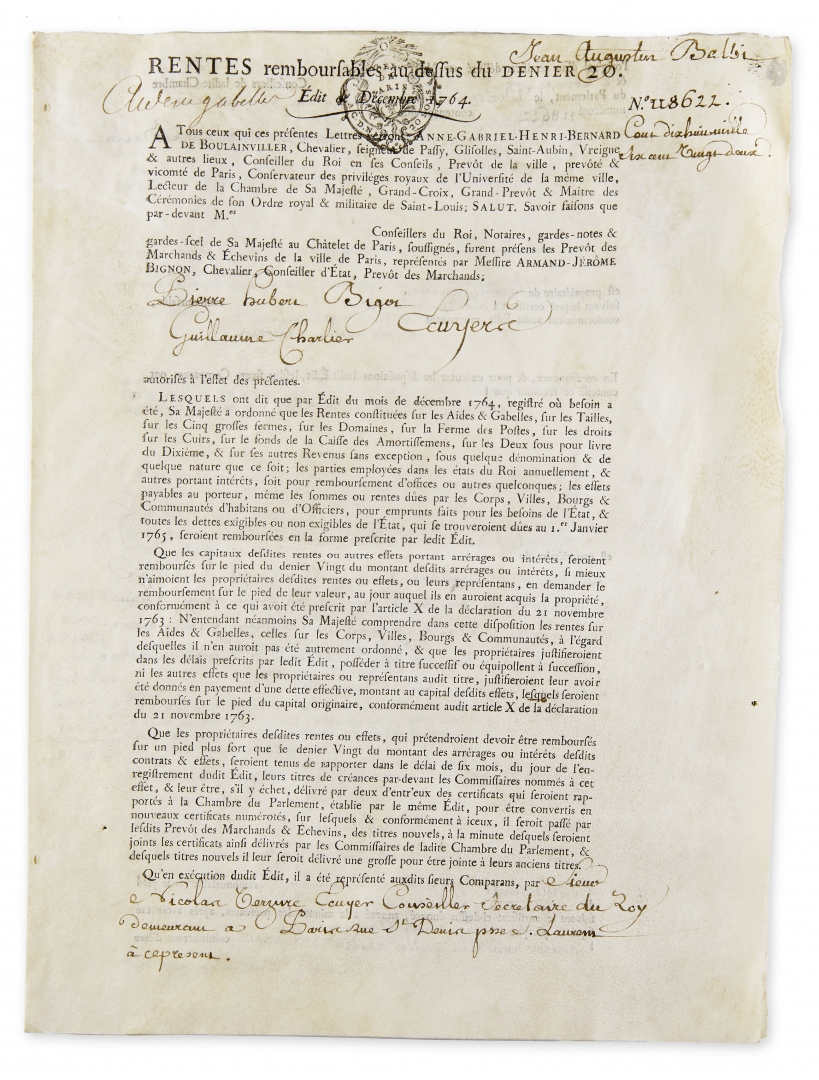 Jean Augustin Balbi
RENTES remboursables au-dessus du DENIER 20.
Edit de Décembre 1764.
N.º 118622.
Cent dix huit mille
six cent vingt deux.
A Tous ceux qui ces présentes Lettres verront, ANNE-GABRIEL-HENRI-BERNARD
DE BOULAINVILLER, Chevalier, seigneur de Passy, Glisolles, Saint-Aubin, Vreigne
& autres lieux, Conseiller du Roi en ses Conseils, Prevôt de la ville, prevôté &
vicomté de Paris, Conservateur des priviléges royaux de l'Université de la même ville,
Lecteur de la Chambre de Sa Majesté, Grand-Croix, Grand-Prevôt & Maitre des
Cérémonies de son Ordre royal & militaire de Saint-Louis; SALUT. Savoir faisons que
par-devant M.es
Conseillers du Roi, Notaires, gardes-notes &
gardes-scel de Sa Majesté au Châtelet de Paris, soussignés, furent présens les Prevôt des
Marchands & Échevins de la ville de Paris, représentés par Messire ARMAND-JÉRÔME
BIGNON, Chevalier, Conseiller d'État, Prevôt des Marchands;
Pierre hubert Bigot
Ecuyers
Guillaume Charlier
autorisés à l'effet des présentes.
LESQUELS ont dit que par Édit du mois de décembre 1764, registré où besoin a
été, Sa Majesté a ordonné que les Rentes constituées sur les Aides & Gabelles, sur les Tailles,
sur les Cinq grosses fermes, sur les Domaines, sur la Ferme des Postes, sur les droits
sur les Cuirs, sur le fonds de la Caisse des Amortissemens, sur les Deux sous pour livre
du Dixième, & sur ses autres Revenus sans exception, sous quelque dénomination & de
quelque nature que ce soit; les parties employées dans les états du Roi annuellement, &
autres portant intérêts, soit pour remboursement d'offices ou autres quelconques; les effets
payables au porteur, même les sommes ou rentes dûes par les Corps, Villes, Bourgs &
Communautés d'habitans ou d'Officiers, pour emprunts faits pour les besoins de l'État, &
toutes les dettes exigibles ou non exigibles de l'État, qui se trouveroient dûes au 1.er Janvier
1765, seroient remboursées en la forme prescrite par ledit Édit.
Que les capitaux desdites rentes ou autres effets portant arrérages ou intérêts, seroient
remboursés sur le pied du denier Vingt du montant desdits arrérages ou intérêts, si mieux
n'aimoient les propriétaires desdites rentes ou effets, ou leurs représentans, en demander le
remboursement sur le pied de leur valeur, au jour auquel ils en auroient acquis la propriété,
conformément à ce qui avoit été prescrit par l'article X de la déclaration du 21 novembre
1763 : N'entendant néanmoins Sa Majesté comprendre dans cette disposition les rentes sur
les Aides & Gabelles, celles sur les Corps, Villes, Bourgs & Communautés, à l'égard
desquelles il n'en auroit pas été autrement ordonné, & que les propriétaires justifieroient
dans les délais prescrits par ledit Édit, posséder à titre successif ou équipollent à succession,
ni les autres effets que les propriétaires ou représentans audit titre, justifieroient leur avoir
été donnés en payement d'une dette effective, montant au capital desdits effets, lesquels seroient
remboursés sur le pied du capital originaire, conformément audit article X de la déclaration
du 21 novembre 1763.
Que les propriétaires desdites rentes ou effets, qui prétendroient devoir être remboursés
sur un pied plus fort que le denier Vingt du montant des arrérages ou intérêts desdits
contrats & effets, seroient tenus de rapporter dans le délai de six mois, du jour de l'en-
registrement dudit Édit, leurs titres de créances par-devant les Commissaires nommés à cet
effet, & leur être, s'il y échet, délivré par deux d'entr'eux des certificats qui seroient rap-
portés à la Chambre du Parlement, établie par le même Édit, pour être convertis en
nouveaux certificats numérotés, sur lesquels & conformément à iceux, il seroit passé par
lesdits Prevôt des Marchands & Echevins, des titres nouvels, à la minute desquels seroient
joints les certificats ainsi délivrés par les Commissaires de ladite Chambre du Parlement, &
desquels titres nouvels il leur seroit délivré une grosse pour être jointe à leurs anciens titres.
Qu'en exécution dudit Édit, il a été représenté auxdits sieurs Comparans, par Sieur
Nicolas Ecuyer Conseiller Secretaire du Roy
demeurant a Paris rue St Denis psse S. Laurent
à ce present.